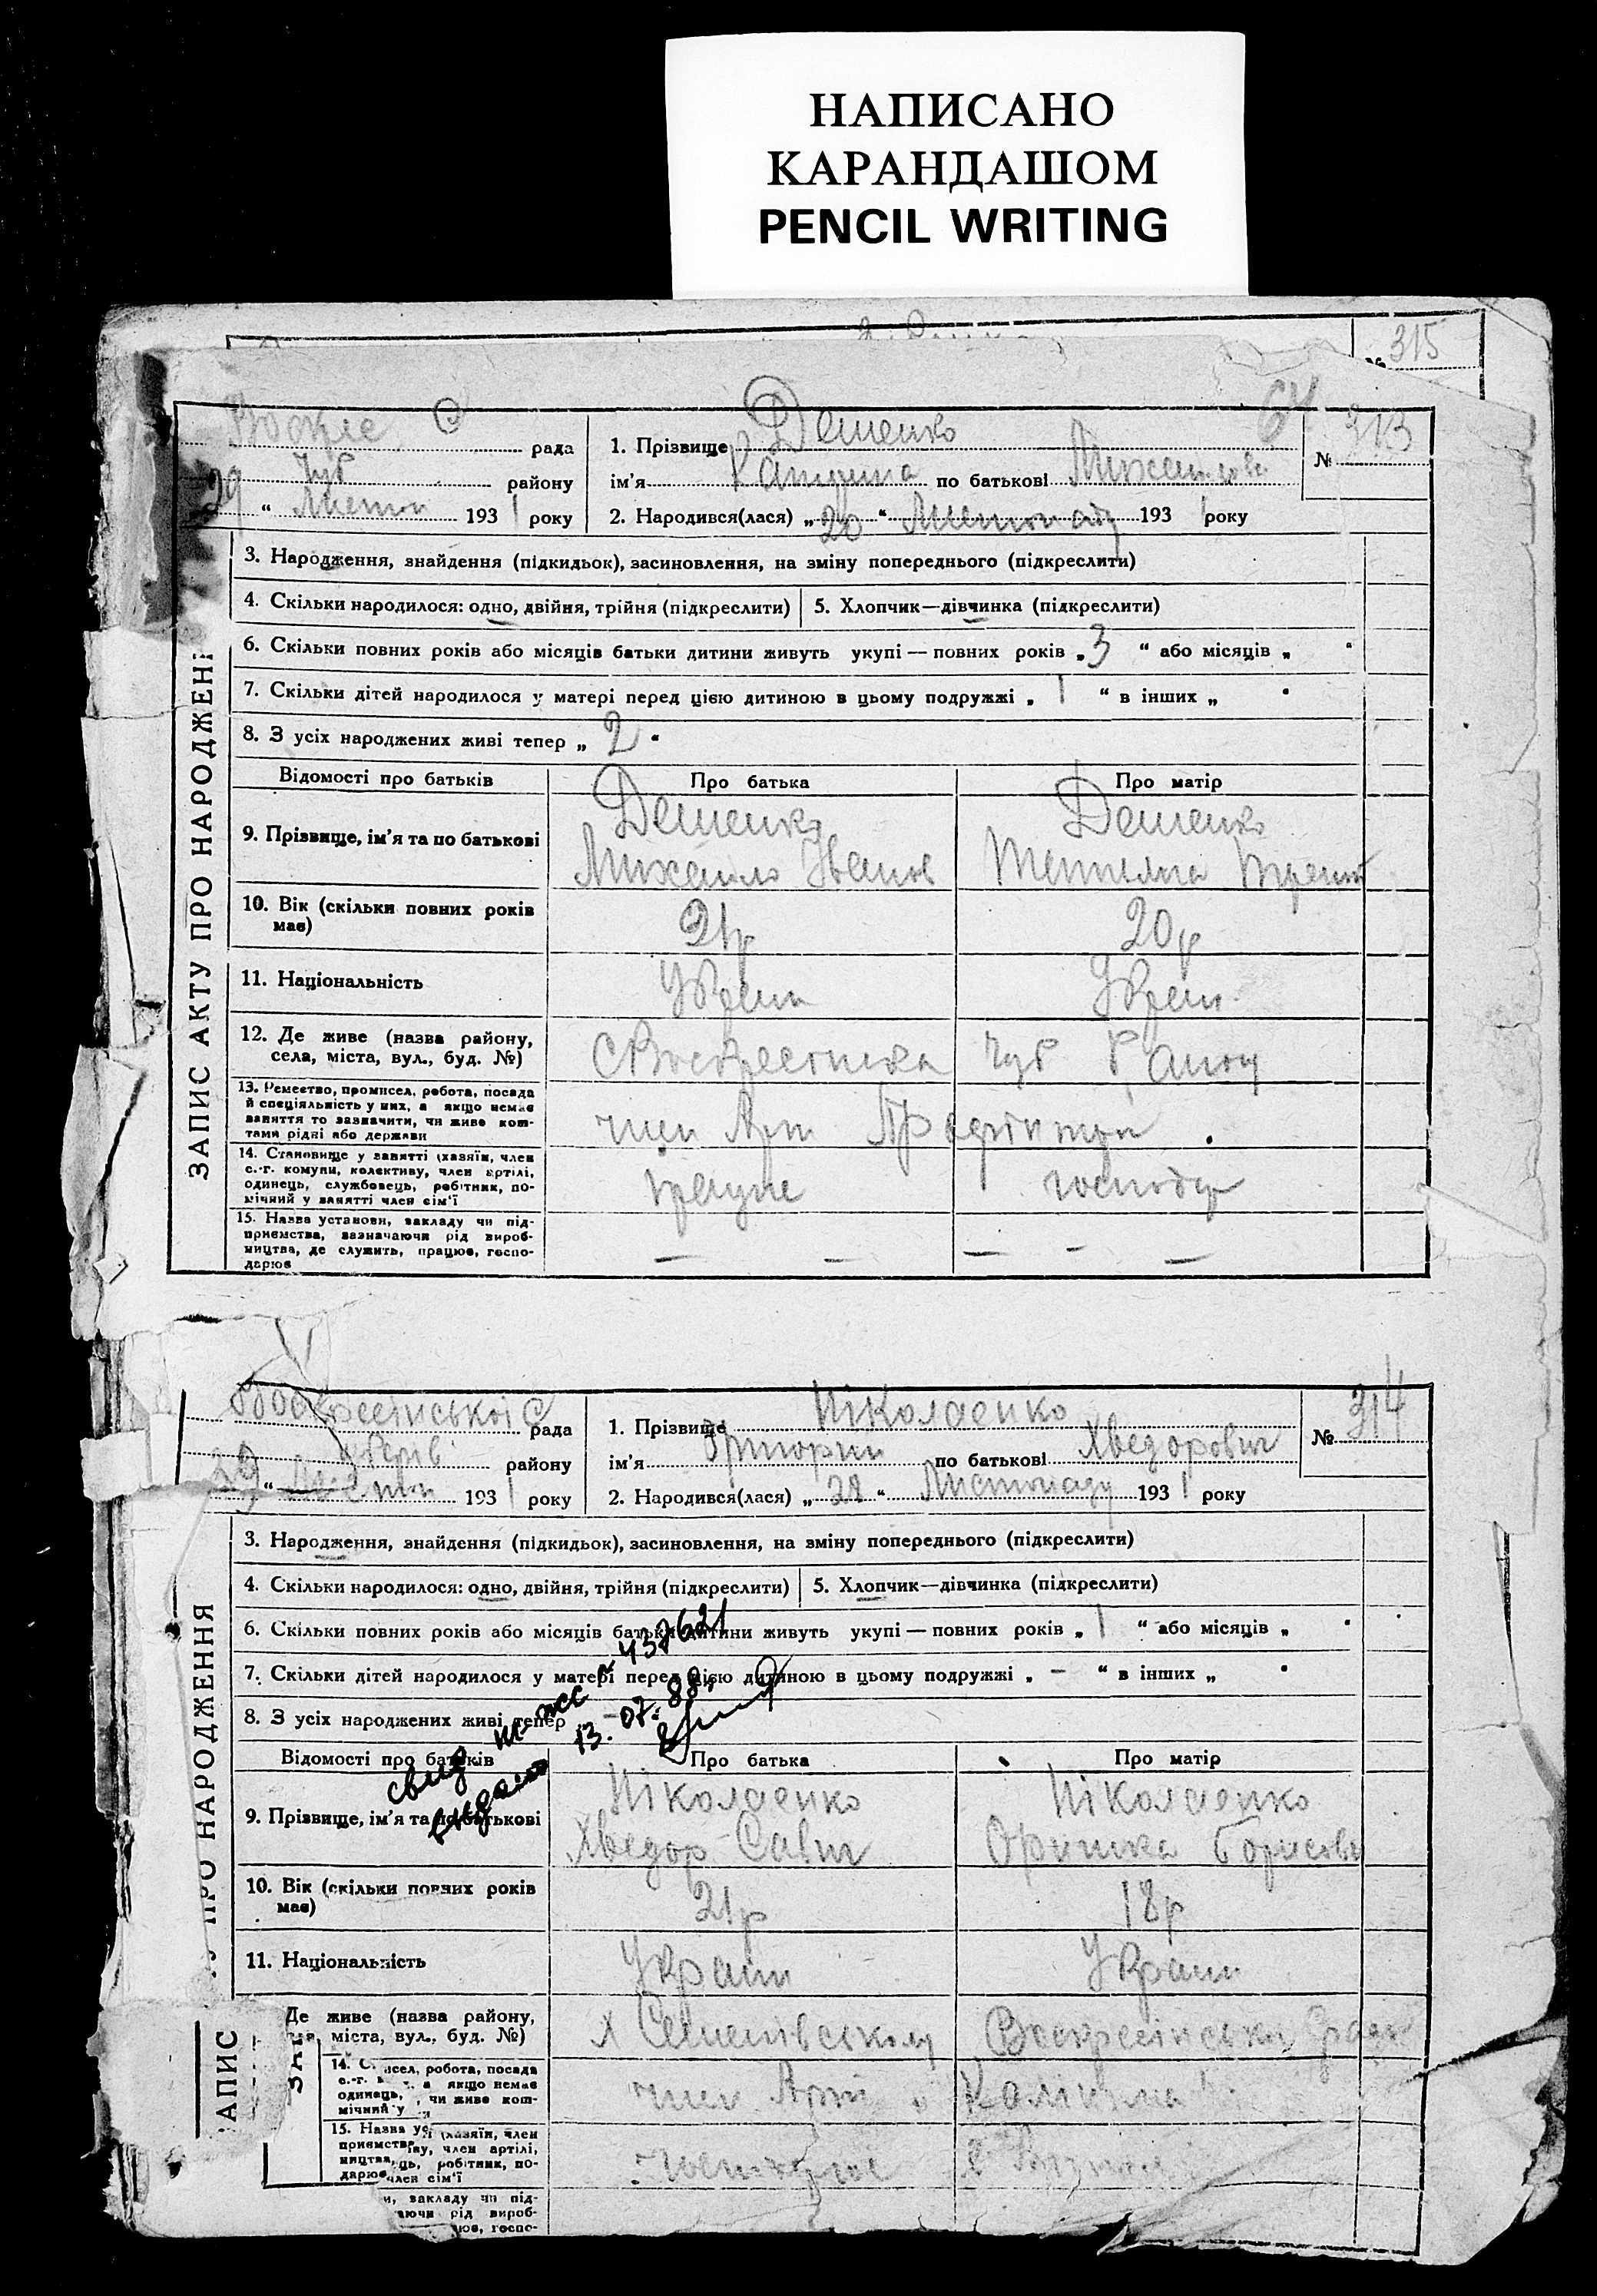 НАПИСАНО
КАРАНДАШОМ
PENCIL WRITING
№ 315
64
ЗАПИС АКТУ ПРО НАРОДЖЕН
Воскре С рада
Чуб району
29 " Листоп 1931 року
1. Прізвище Деменко
ім'я Катерина по батькові Михайлов
2. Народився(лася) „20" Листопаду 1931 року
№ 313
3. Народження, знайдення (підкидьок), засиновлення, на зміну попереднього (підкреслити)
4. Скільки народилося: одно, двійня, трійня (підкреслити)
5. Хлопчик—дівчинка (підкреслити)
6. Скільки повних років або місяців батьки дитини живуть укупі — повних років „3 " або місяців „ "
7. Скільки дітей народилося у матері перед цією дитиною в цьому подружжі „ 1 " в інших „ "
8. З усіх народжених живі тепер „ 2 "
Відомості про батьків Про батька Про матір
9. Прізвище, ім'я та по батькові
Деменко Деменко
Михайло Іванов Тетяна
10. Вік (скільки повних років має)
21р 20р
11. Національність
Украин Украин
12. Де живе (назва району, села, міста, вул., буд. №)
С Воскресенка Чуб Району
13. Ремество, промисел, робота, посада
й спеціяльність у них, а якщо немає
заняття то зазначити, чи живе кош-
тами рідні або держави
член Арт
14. Становище у занятті (хазяїн, член
с.-г. комуни, колективу, член артілі,
одинець, службовець, робітник, по-
мічний у занятті член сім'ї
працює господар
15. Назва установи, закладу чи під-
приємства, зазначаючи рід вироб-
ництва, де служить, працює, госпо-
дарює
— — — - —
ПРО НАРОДЖЕННЯ
Воскресінської С рада
району
29 " Листоп 1931 року
1. Прізвище Ніколаенко
ім'я Григорий по батькові Хведорович
2. Народився(лася) „28" Листопаду 1931 року
№ 314
3. Народження, знайдення (підкидьок), засиновлення, на зміну попереднього (підкреслити)
4. Скільки народилося: одно, двійня, трійня (підкреслити)
5. Хлопчик—дівчинка (підкреслити)
6. Скільки повних років або місяців батьки дитини живуть укупі — повних років „ 1 " або місяців „ "
7. Скільки дітей народилося у матері перед цією дитиною в цьому подружжі „ — " в інших „ "
8. З усіх народжених живі тепер —
свид 437621
выдано 13.07.88
Відомості про батьків Про батька Про матір
9. Прізвище, ім'я та по батькові
Ніколаенко Ніколаенко
Хведор Савич Оришка Борисовн
10. Вік (скільки повних років має)
21р 18р
11. Національність
Украин Украин
Де живе (назва району,
міста, вул., буд. №)
Х Семенівському Воскресінської
АПИС
14. С
с.-г.
одинець,
мічний у
исел, робота, посада
а якщо немає
чи живе кош-
член Арт
15. Назва ус
приємства
ництва,
дарює
(хазяїн, член
ву, член артілі,
ць, робітник, по-
член сім'ї
и, закладу чи під-
аючи рід вироб-
ює, госпо-